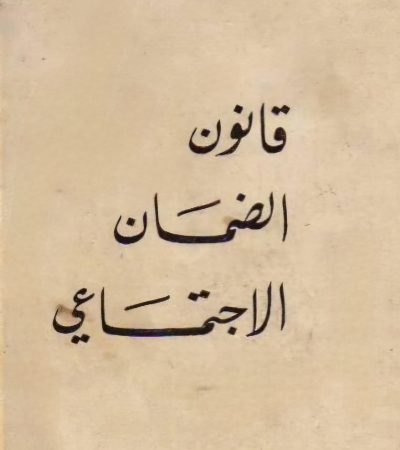 قانون
الضمان
الاجتماعي